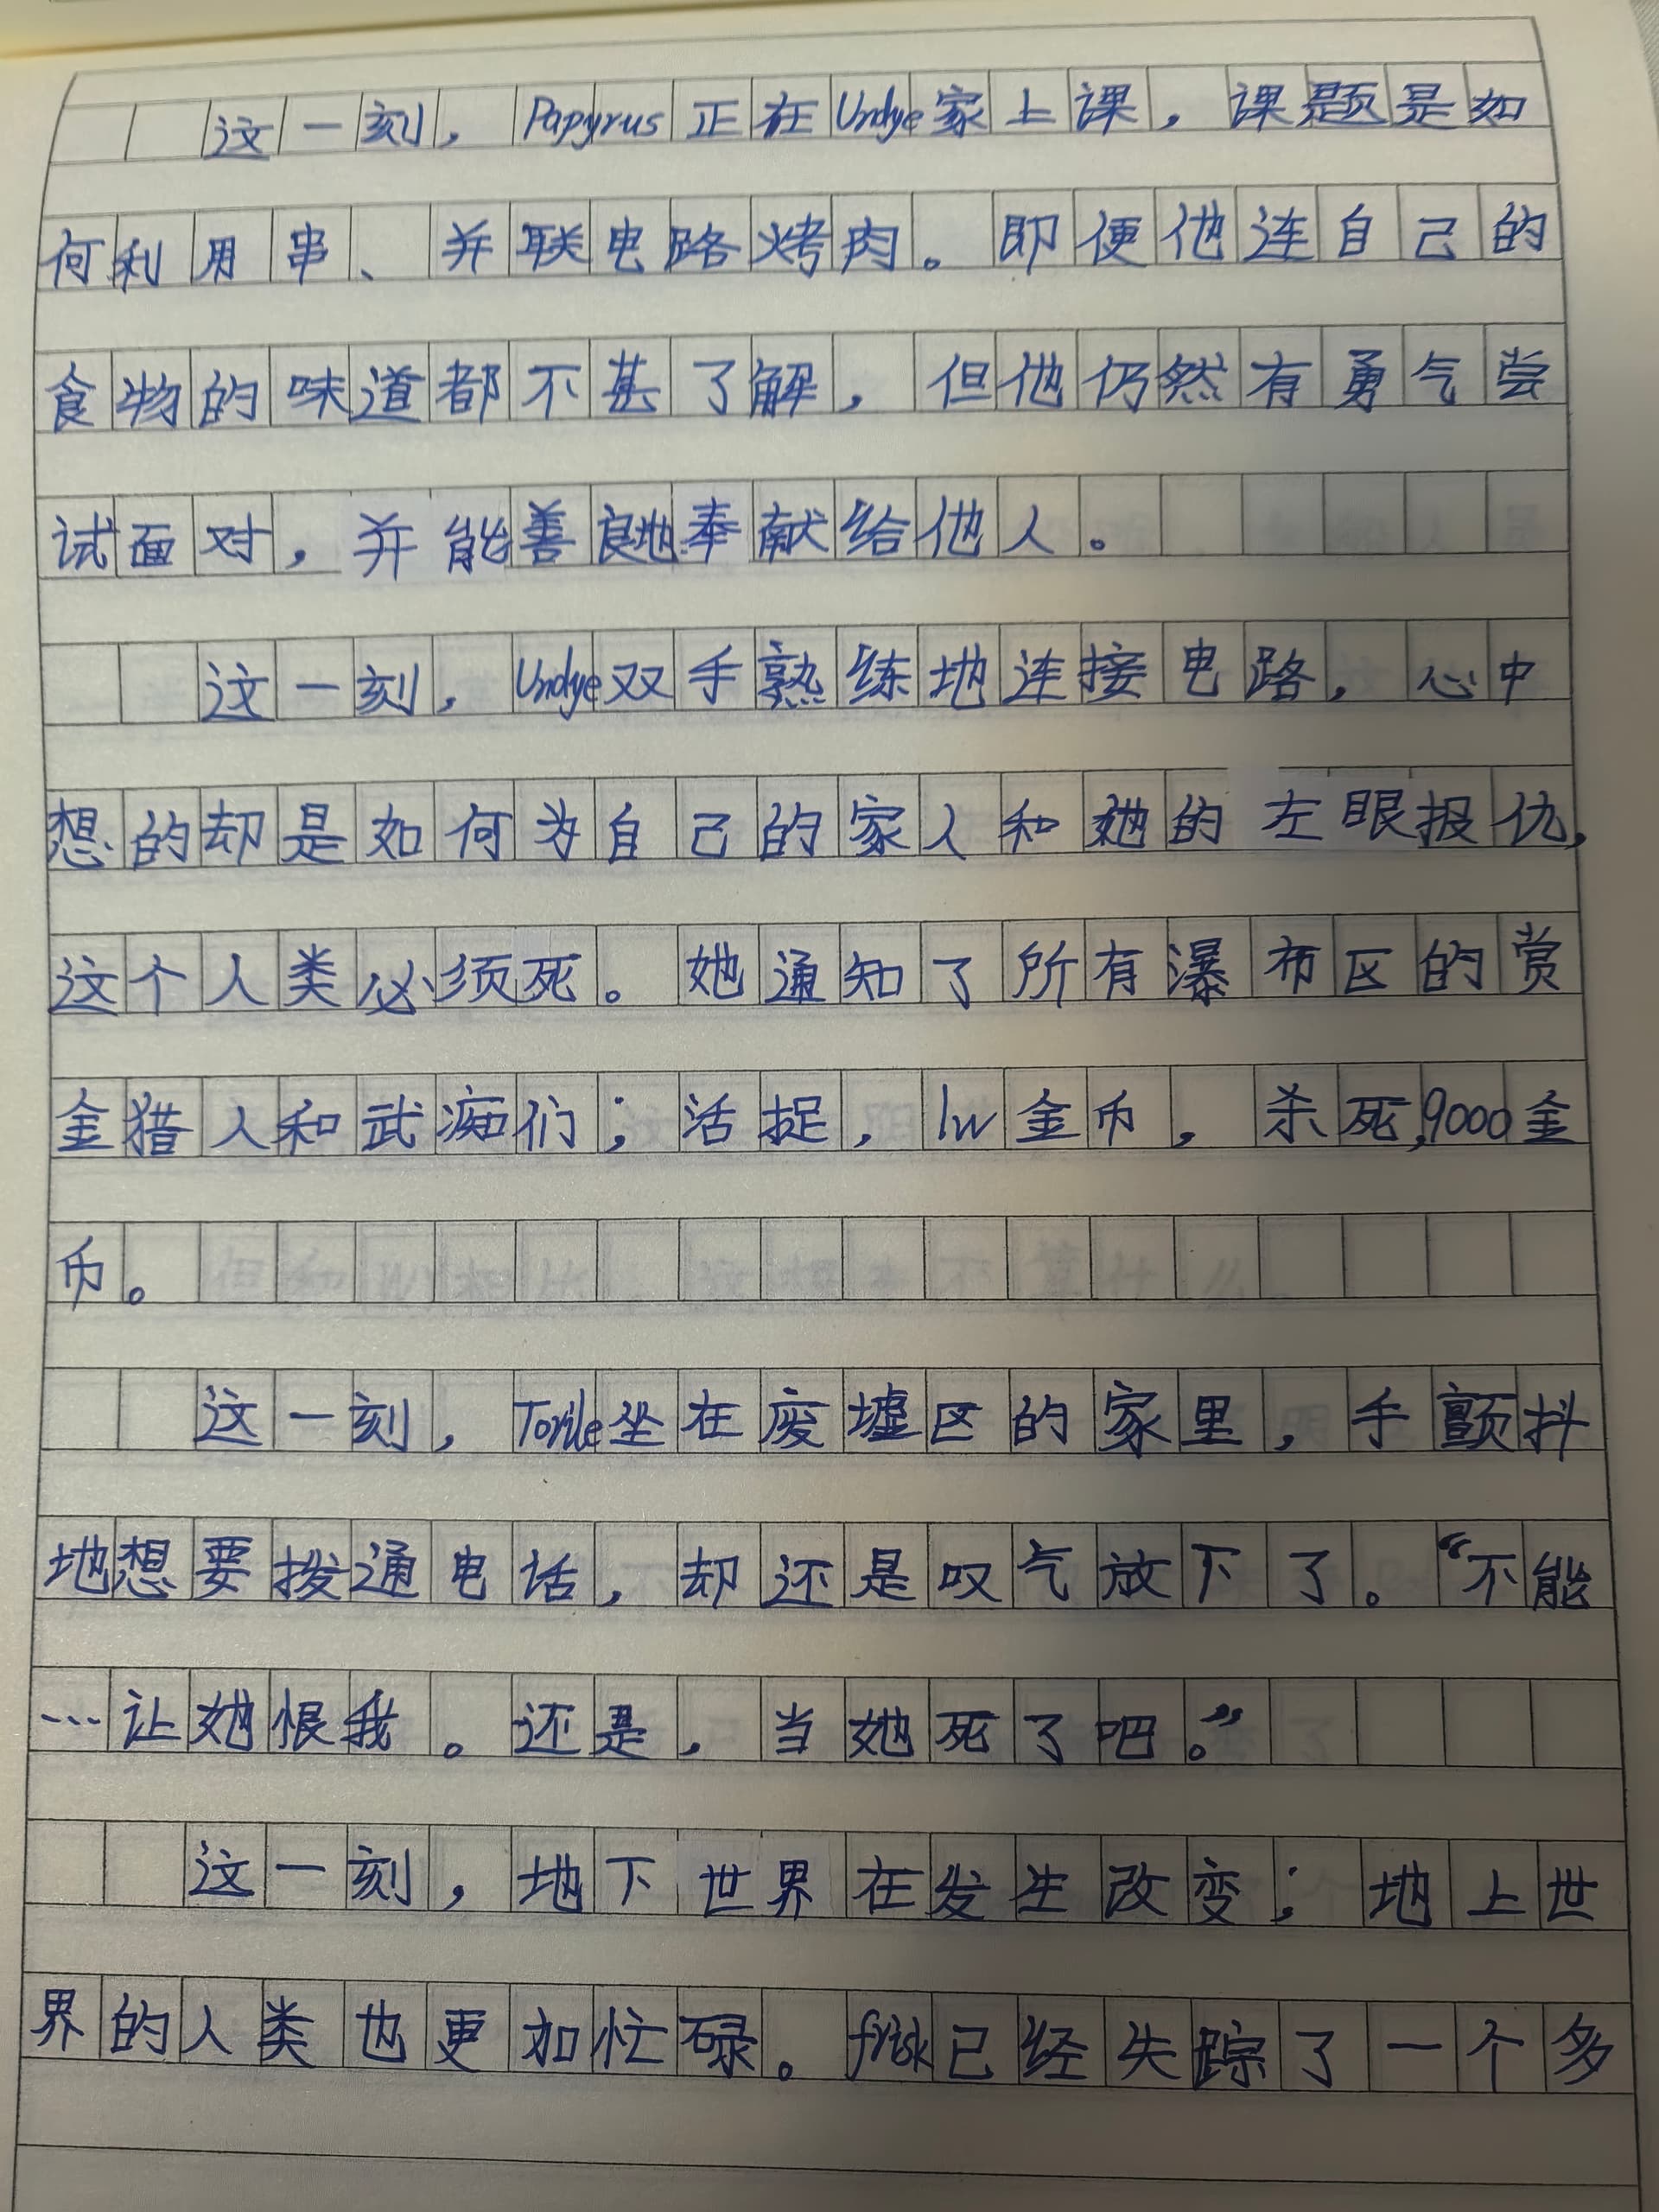 这一刻，Papyrus正在Undye家上课，课题是如
何利用串、并联电路烤肉。即便他连自己的
食物的味道都不甚了解，但他仍然有勇气尝
试面对，并能善良地奉献给他人。
这一刻，Undye双手熟练地连接电路，心中
想的却是如何为自己的家人和她的左眼报仇，
这个人类必须死。她通知了所有瀑布区的赏
金猎人和武痴们；活捉，1w金币，杀死，9000金
币。
这一刻，Torile坐在废墟区的家里，手颤抖
地想要拨通电话，却还是叹气放下了。“不能
…让她恨我。还是，当她死了吧。”
这一刻，地下世界在发生改变；地上世
界的人类也更加忙碌。frisk已经失踪了一个多